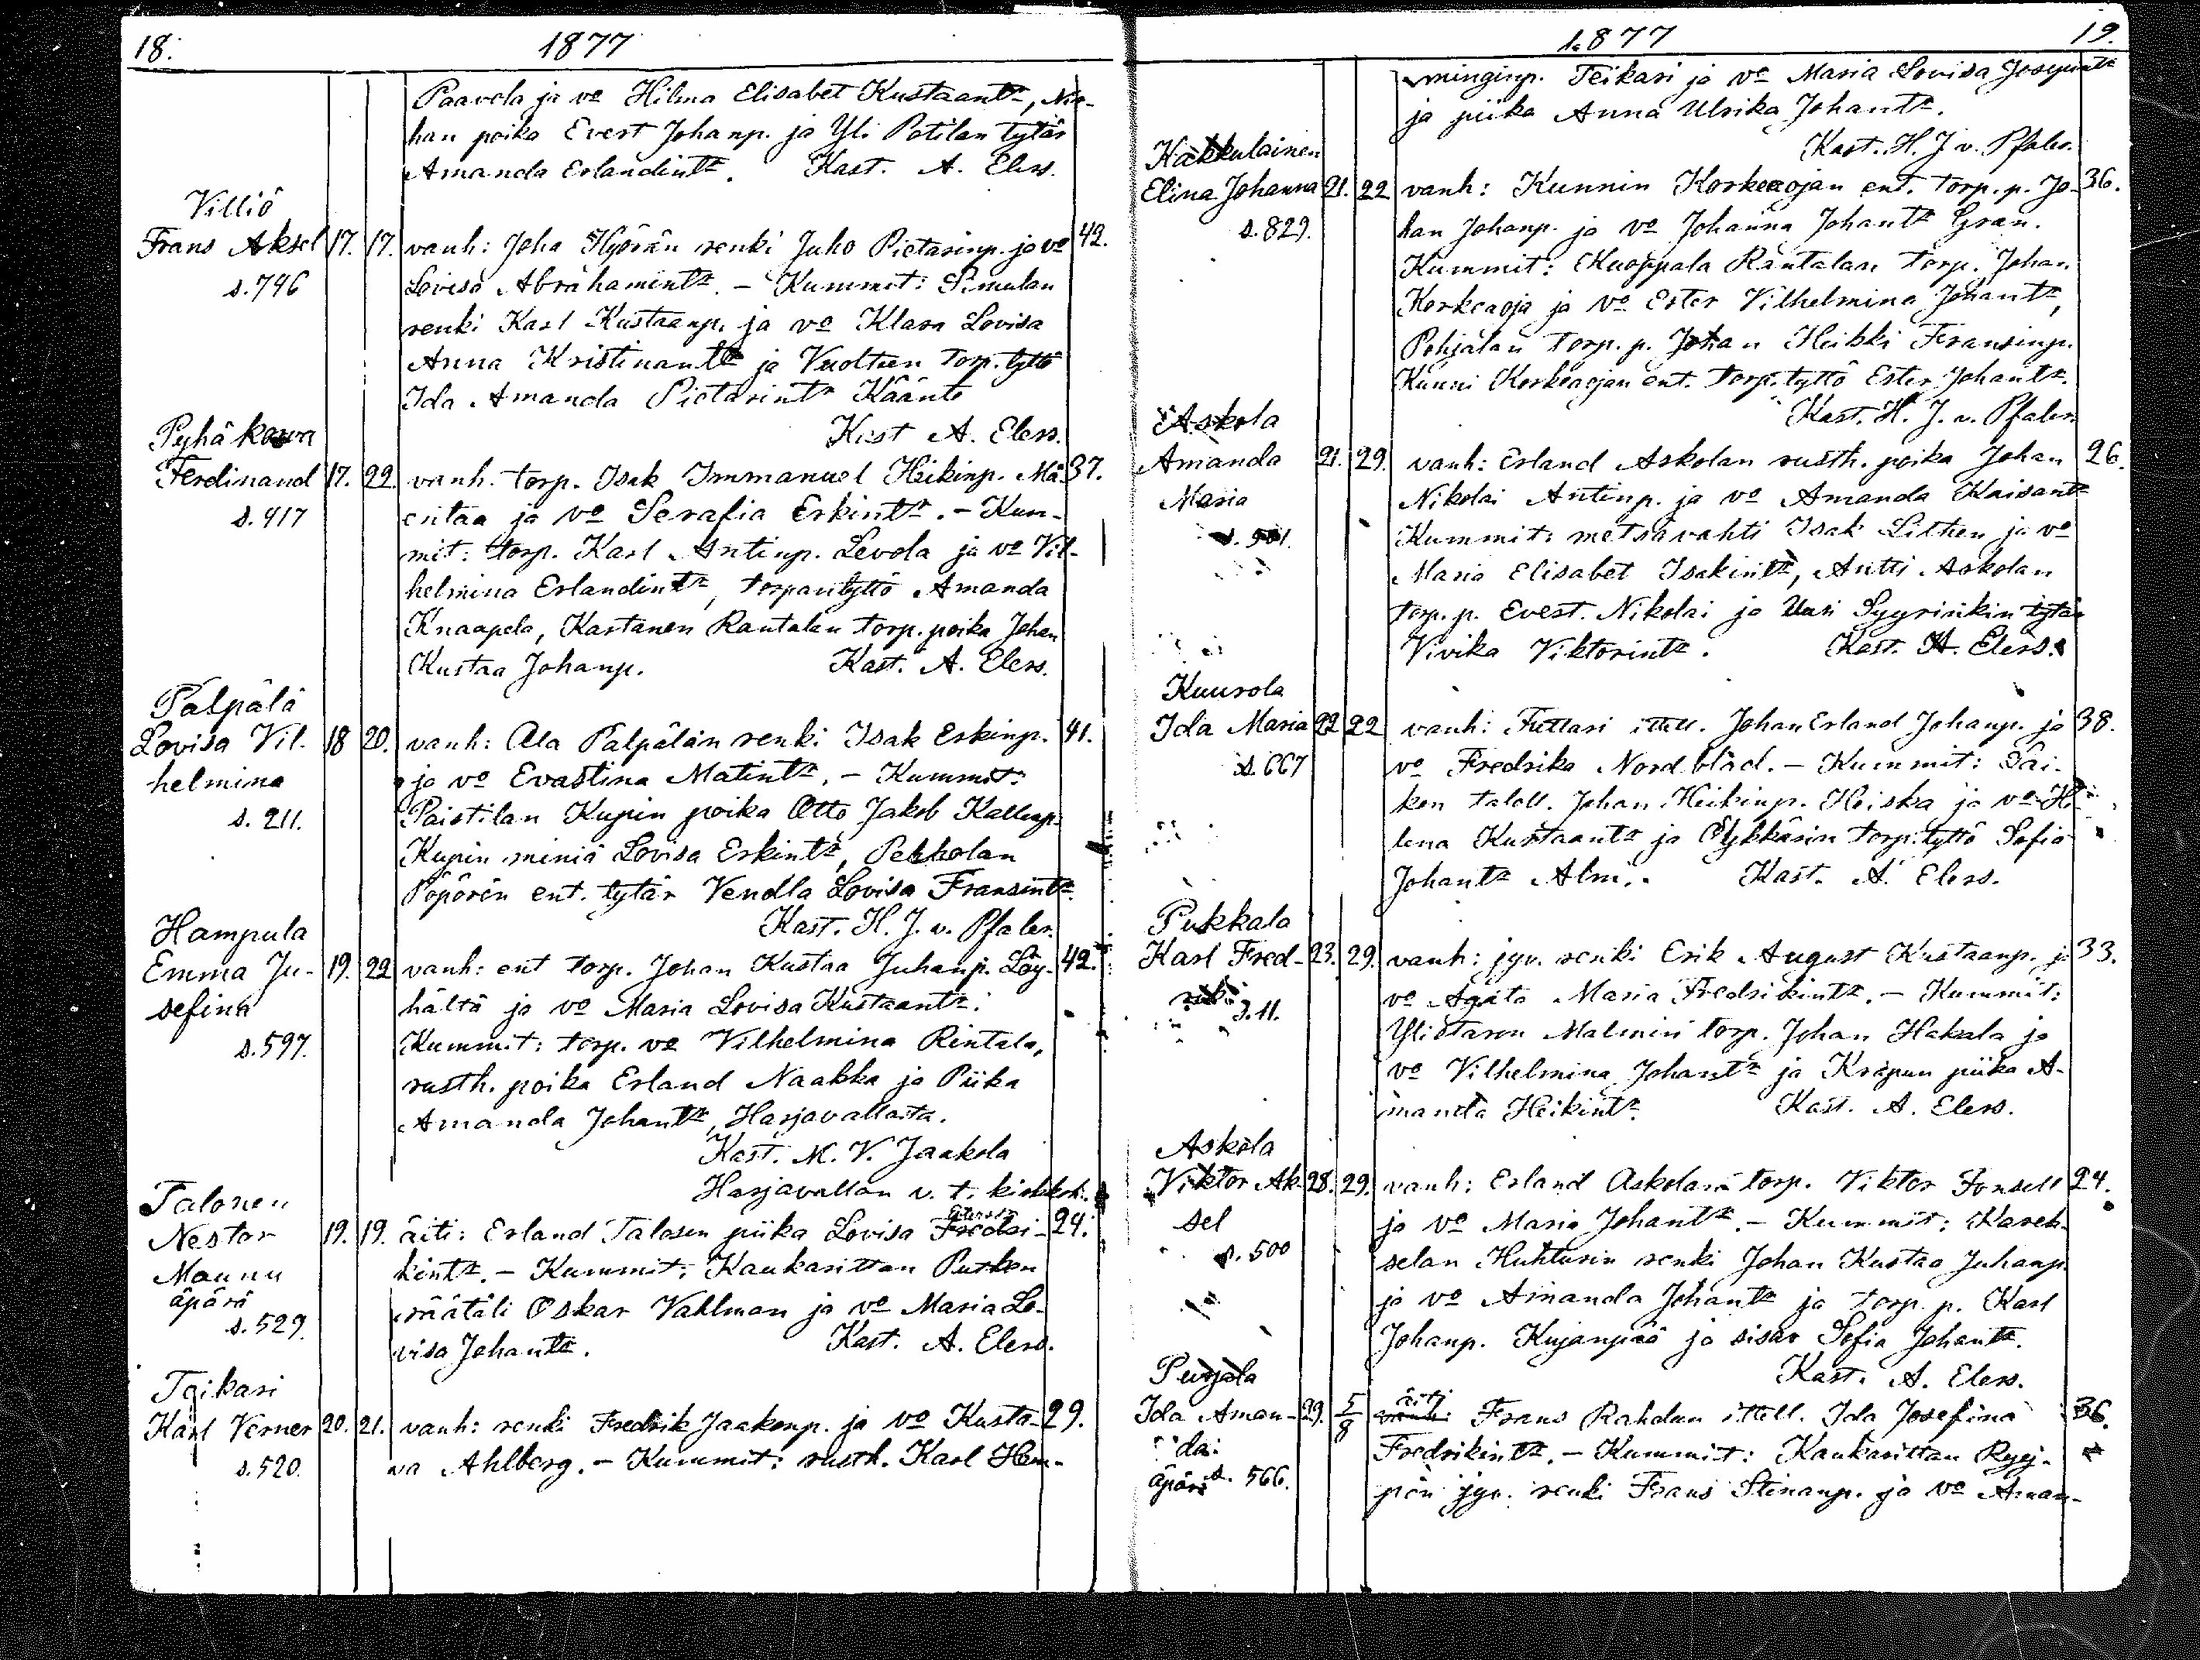 18.
1877
Paavola ja vo Hilma Elisabet Kustaantr, Nie-
han poika Evert Johanp. ja Yli Potilan tytär
Amanda Erlandintr. Kast. A. Elers.
Villiö
Frans Aksel 17. 17. vanh: Joha Hyörän renki Juho Pietarinp. ja vo 42.
s. 796 Lovisa Abrahamintr. – Kummit: Simulan
renki Karl Kustaanp. ja vo Klara Lovisa
Anna Kristinantr ja Vuolteen torp. tyttö
Ida Amanda Pietarintr Käänte
Kast A. Elers.
Pyhäkorva
Ferdinand 17. 22. vanh. torp. Isak Immanuel Heikinp. Mä- 37.
s. 917 entaa ja vo Serafia Erkintr. – Kum-
mit: torp. Karl Antinp. Levola ja vo Vil-
helmina Erlandintr, torparityttö Amanda
Knaapela, Kastanen Rantalan torp. poika Johan
Kustaa Johanp. Kast. A. Elers.
Palpälä
Lovisa Vil- 18 20. vanh: Ala Palpälän renki Isak Erkinp. 41.
helmina ja vo Evastina Matintr. – Kummit:
s. 211. Paistilan Kupin poika Otto Jakob Kallenp.
Kupin miniä Lovisa Erkintr, Pekkolan
Pöpörön ent. tytär Vendla Lovisa Fransintr.
Kast. H. J. v. Pfaler.
Hampula
Emma Jo- 19. 22 vanh: ent torp. Johan Kustaa Juhanp. Löy- 42.
sefina hältä ja vo Maria Lovisa Kustaantr.
s. 597. Kummit: torp. vo Vilhelmina Rintala,
rusth. poika Erland Naakka ja Piika
Amanda Johantr, Harjavallasta.
Kast. M. V. Jaakola
Harjavallan v. t. kirkkoh.
Talonen
Nestor 19. 19. äiti: Erland Talosen piika Lovisa Fredri- 24.
Maunu kintr. – Kummit: Kaukarittan Putken
äpärä räätäli Oskar Vahlman ja vo Maria Lo-
s. 529. visa Johantr. Kast. A. Elers.
Teikari
Karl Verner 20. 21. vanh: renki Fredrik Jaakonp. ja vo Kusta- 29.
s. 520. va Ahlberg. – Kummit: rusth. Karl Hem-
1877
19.
minginp. Teikari ja vo Maria Lovisa Josepintr
ja piika Anna Ulrika Johantr.
Kast. H. J. v. Pfaler.
Kakkulainen
Elina Johanna 21. 22 vanh: Kunnin Korkeaojan ent. torp. p. Jo- 36.
s. 829. han Johanp. ja vo Johanna Johantr Gran.
Kummit: Kuoppala Rantalan torp. Johan
Korkeaoja ja vo Ester Vilhelmina Johantr,
Pohjalan torp. p. Johan Heikki Fransinp.
Kunni Korkeaojan ent. torp. tyttö Ester Johantr.
Kast. H. J. v. Pfaler.
Askola
Amanda 21. 29. vanh: Erland Askolan rusth. poika Johan 26.
Maria Nikolai Antinp. ja vo Amanda Kaisantr
s. 501. Kummit: metsävahti Isak Lithen ja vo
Maria Elisabet Isakintr, Antti Askolan
torp. p. Evert Nikolai ja Uusi Syyrinkin tytär
Vivika Viktorintr. Kast. A. Elers.
Kuurola
Ida Maria 22 22 vanh: Futtari itell. Johan Erland Johanp. ja 38.
s. 667 vo Fredrika Nordblad. – Kummit: Säi-
ken taloll. Johan Heikinp. Heiska ja vo He-
lena Kustaantr ja Öykkärin torp. tyttö Sofia
Johantr Alm. Kast. A. Elers.
Pukkala
Karl Fred- 23. 29. vanh: jyv. renki Erik August Kustaanp. ja 33.
rik s. 11. vo Agata Maria Fredrikintr. – Kummit:
Ylistaron Malmin torp. Johan Hakala ja
vo Vilhelmina Johantr ja Krapun piika A-
manda Heikintr. Kast. A. Elers.
Askola
Viktor Ak- 28. 29. vanh: Erland Askolan torp. Viktor Fonsell 24.
sel ja vo Maria Johantr. – Kummit: Karek-
s. 500 selan Huhturin renki Johan Kustaa Juhanp.
ja vo Amanda Johantr ja torp. p. Karl
Johanp. Kujanpää ja sisar Sofia Johantr.
Kast. A. Elers.
Purjala
Ida Aman- 29. 5/8 äiti Frans Rahdun itell. Ida Josefina 36.
da Fredrikintr. – Kummit: Kaukarittan
äpärä s. 566. jyv. renki Frans Stinanp. ja vo Aman-